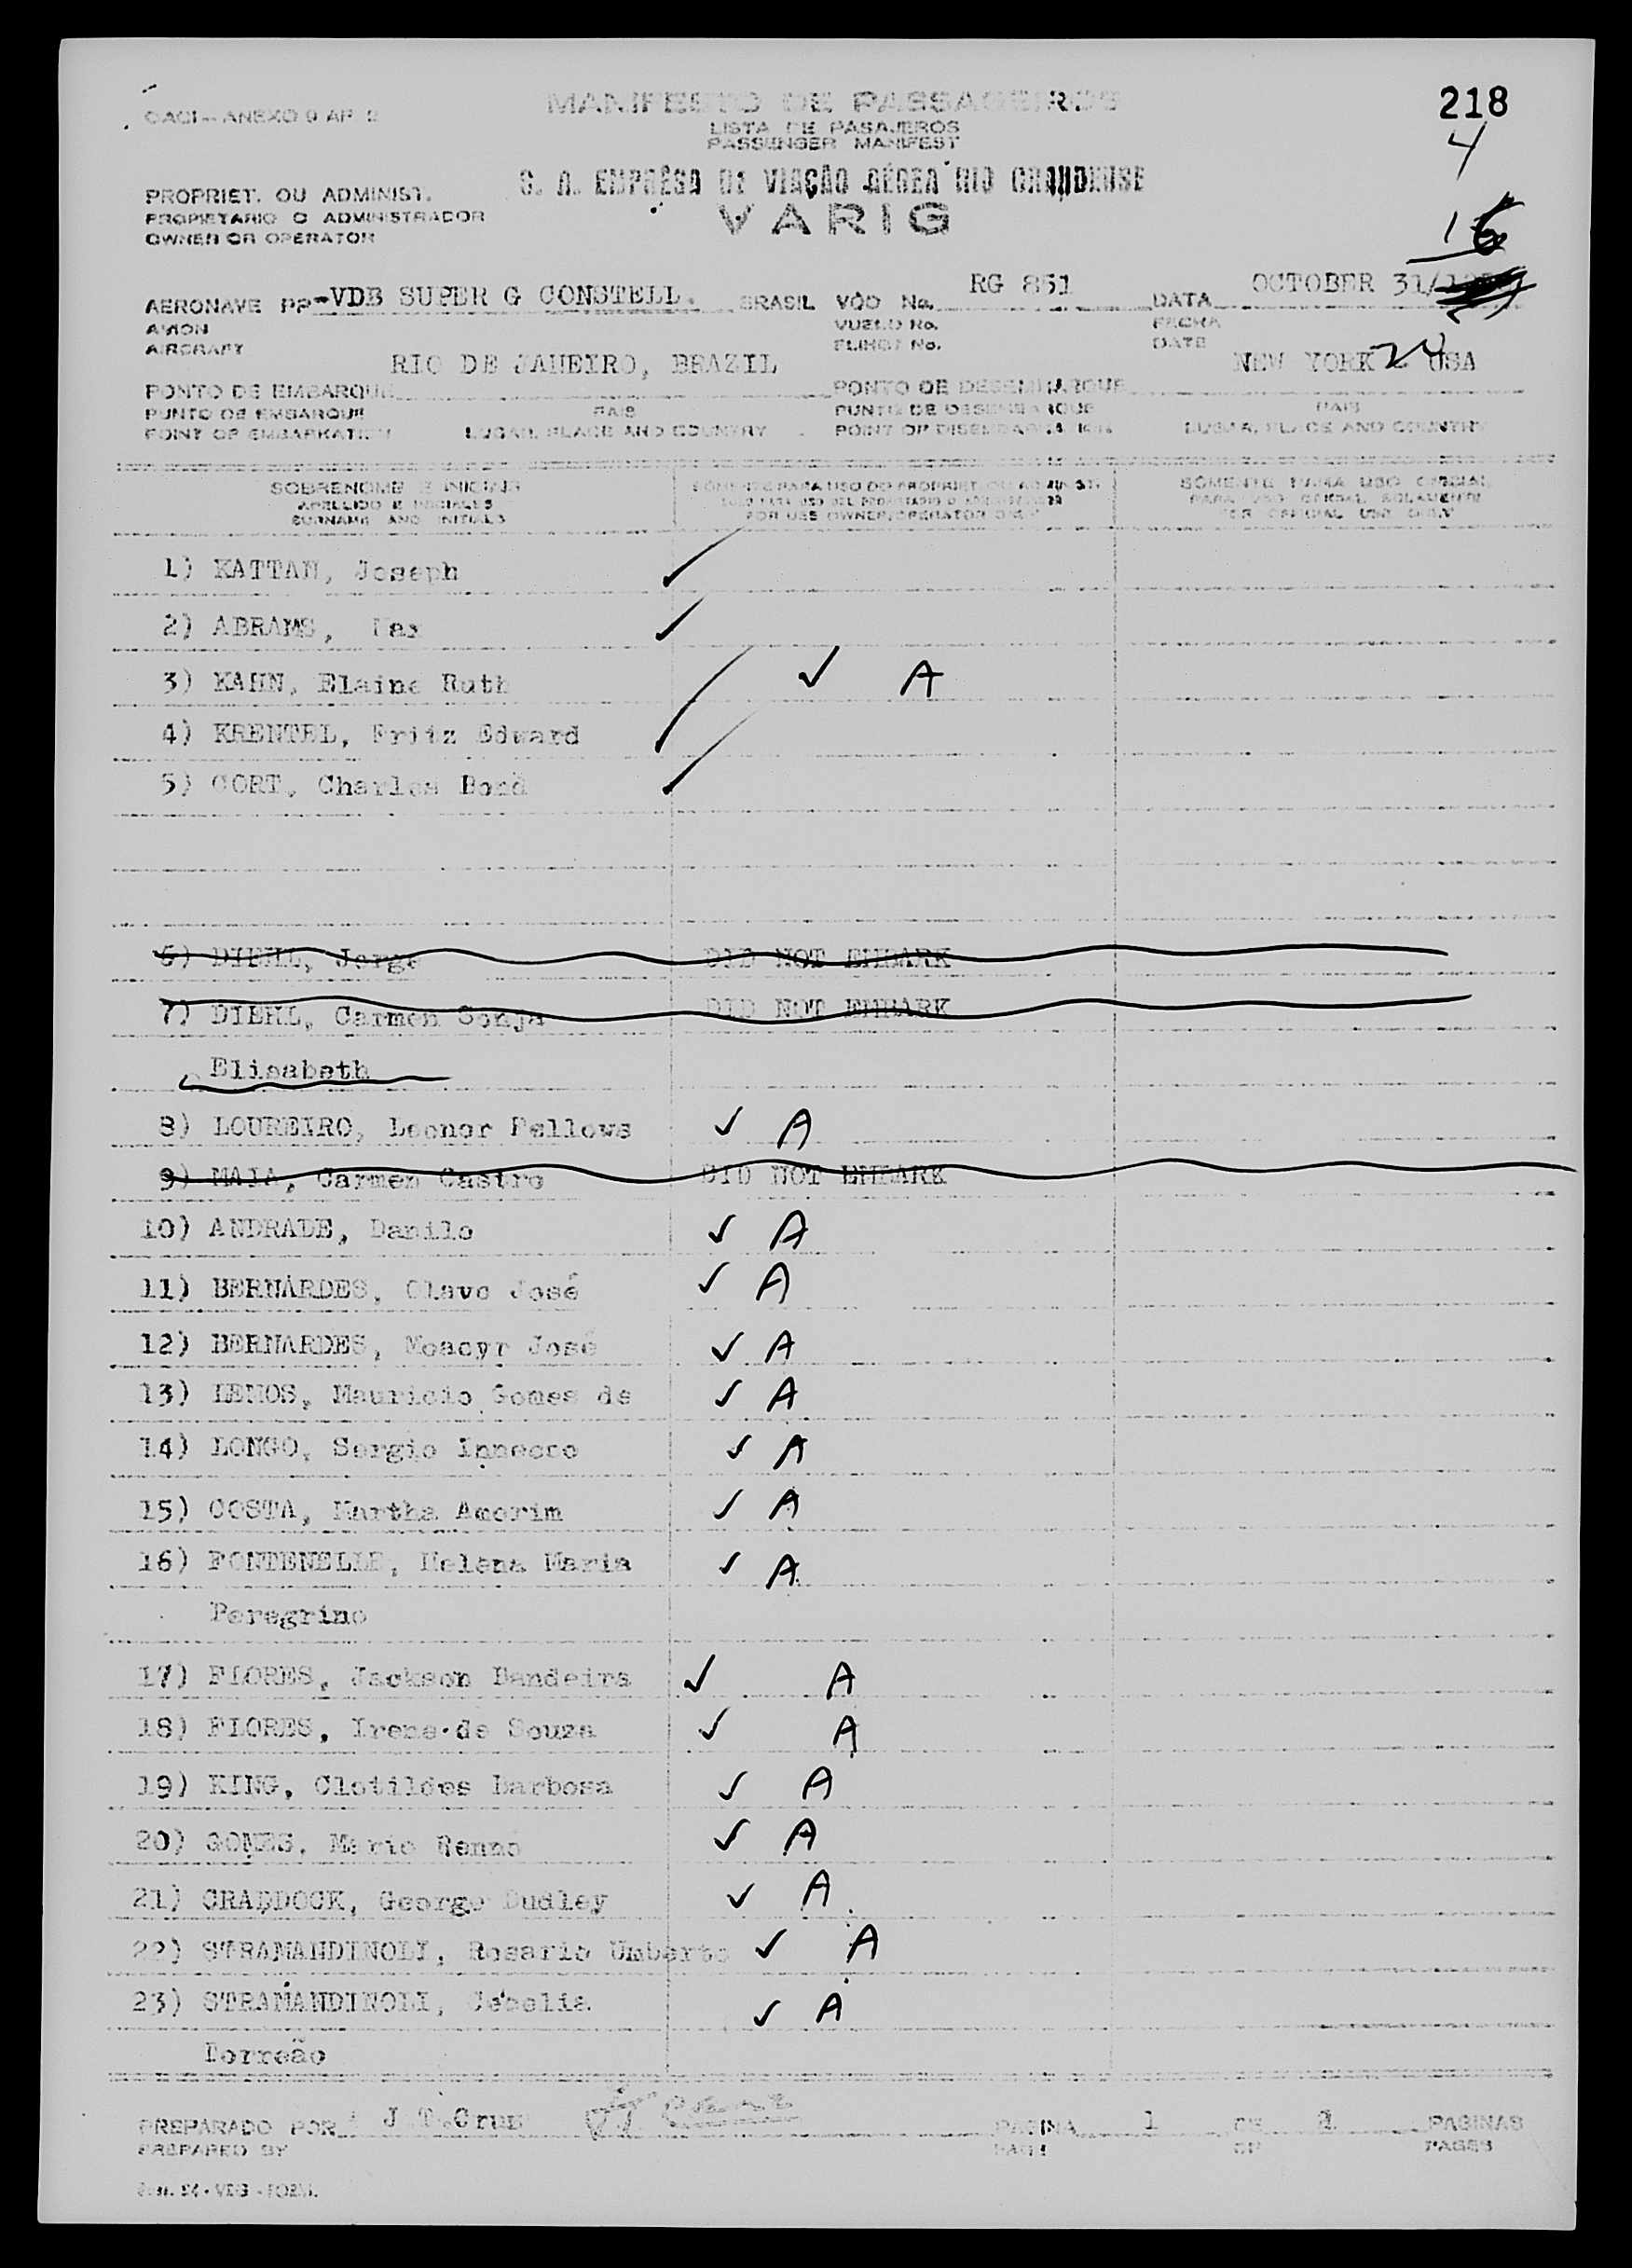 218
OACI - ANEXO 9 AP 2
MANIFESTO DE PASSAGEIROS
LISTA DE PASAJEROS
PASSENGER MANIFEST
4
S. A. EMPRÊSA DE VIAÇÃO AÉREA RIO GRANDENSE
VARIG
PROPRIET. OU ADMINIST.
PROPIETARIO O ADMINISTRADOR
OWNER OR OPERATOR
16
AERONAVE PP-VDB SUPER G CONSTELL. BRASIL VÔO No. RG 851 DATA OCTOBER 31/
AVION VUELO No. FECHA
AIRCRAFT FLIGHT No. DATE
RIO DE JANEIRO, BRAZIL NEW YORK USA
PONTO DE EMBARQUE PONTO DE DESEMBARQUE
PUNTO DE EMBARQUE PAIS PUNTO DE DESEMBARQUE PAIS
POINT OF EMBARKATION LUGAR, PLACE AND COUNTRY POINT OF DISEMBARKATION LUGAR, PLACE AND COUNTRY
SOBRENOME E INICIAIS SÓMENTE PARA USO DO PROPRIET. OU ADMINIST. SÓMENTE PARA USO OFICIAL
APELLIDO E INICIALES SOLO PARA USO DEL PROPIETARIO O ADMINISTRADOR PARA USO OFICIAL SOLAMENTE
SURNAME AND INITIALS FOR USE OWNER/OPERATOR ONLY FOR OFFICIAL USE ONLY
1) KATTAN, Joseph ✓
2) ABRAMS, Max ✓
3) KAHN, Elaine Ruth ✓ A
4) KRENTEL, Fritz Edward ✓
5) CORT, Charles Bord ✓
6) DIEHL, Jorge DID NOT EMBARK
7) DIEHL, Carmen Sonja DID NOT EMBARK
Elisabeth
8) LOUREIRO, Leonor Fellows ✓ A
9) MAIA, Carmen Castro DID NOT EMBARK
10) ANDRADE, Danilo ✓ A
11) BERNARDES, Olavo José ✓ A
12) BERNARDES, Moacyr José ✓ A
13) LEMOS, Mauricio Gomes de ✓ A
14) LONGO, Sergio Innecco ✓ A
15) COSTA, Martha Amorim ✓ A
16) FONTENELLE, Helena Maria ✓ A
Peregrino
17) FLORES, Jackson Bandeira ✓ A
18) FLORES, Irene de Souza ✓ A
19) KING, Clotildes Barbosa ✓ A
20) GOMES, Mario Renno ✓ A
21) CRADDOCK, George Dudley ✓ A
22) STRAMANDINOLI, Rosario Umberto ✓ A
23) STRAMANDINOLI, Cebelia ✓ A
Torreão
PREPARADO POR J.T.Cruz PAGINA 1 DE PAGINAS
PREPARED BY PAGE OF PAGES